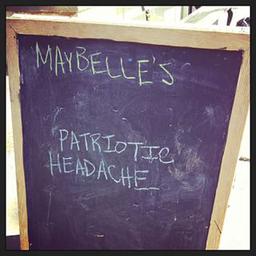 MAYBELLE'S
PATRIOTIC
HEADACHE